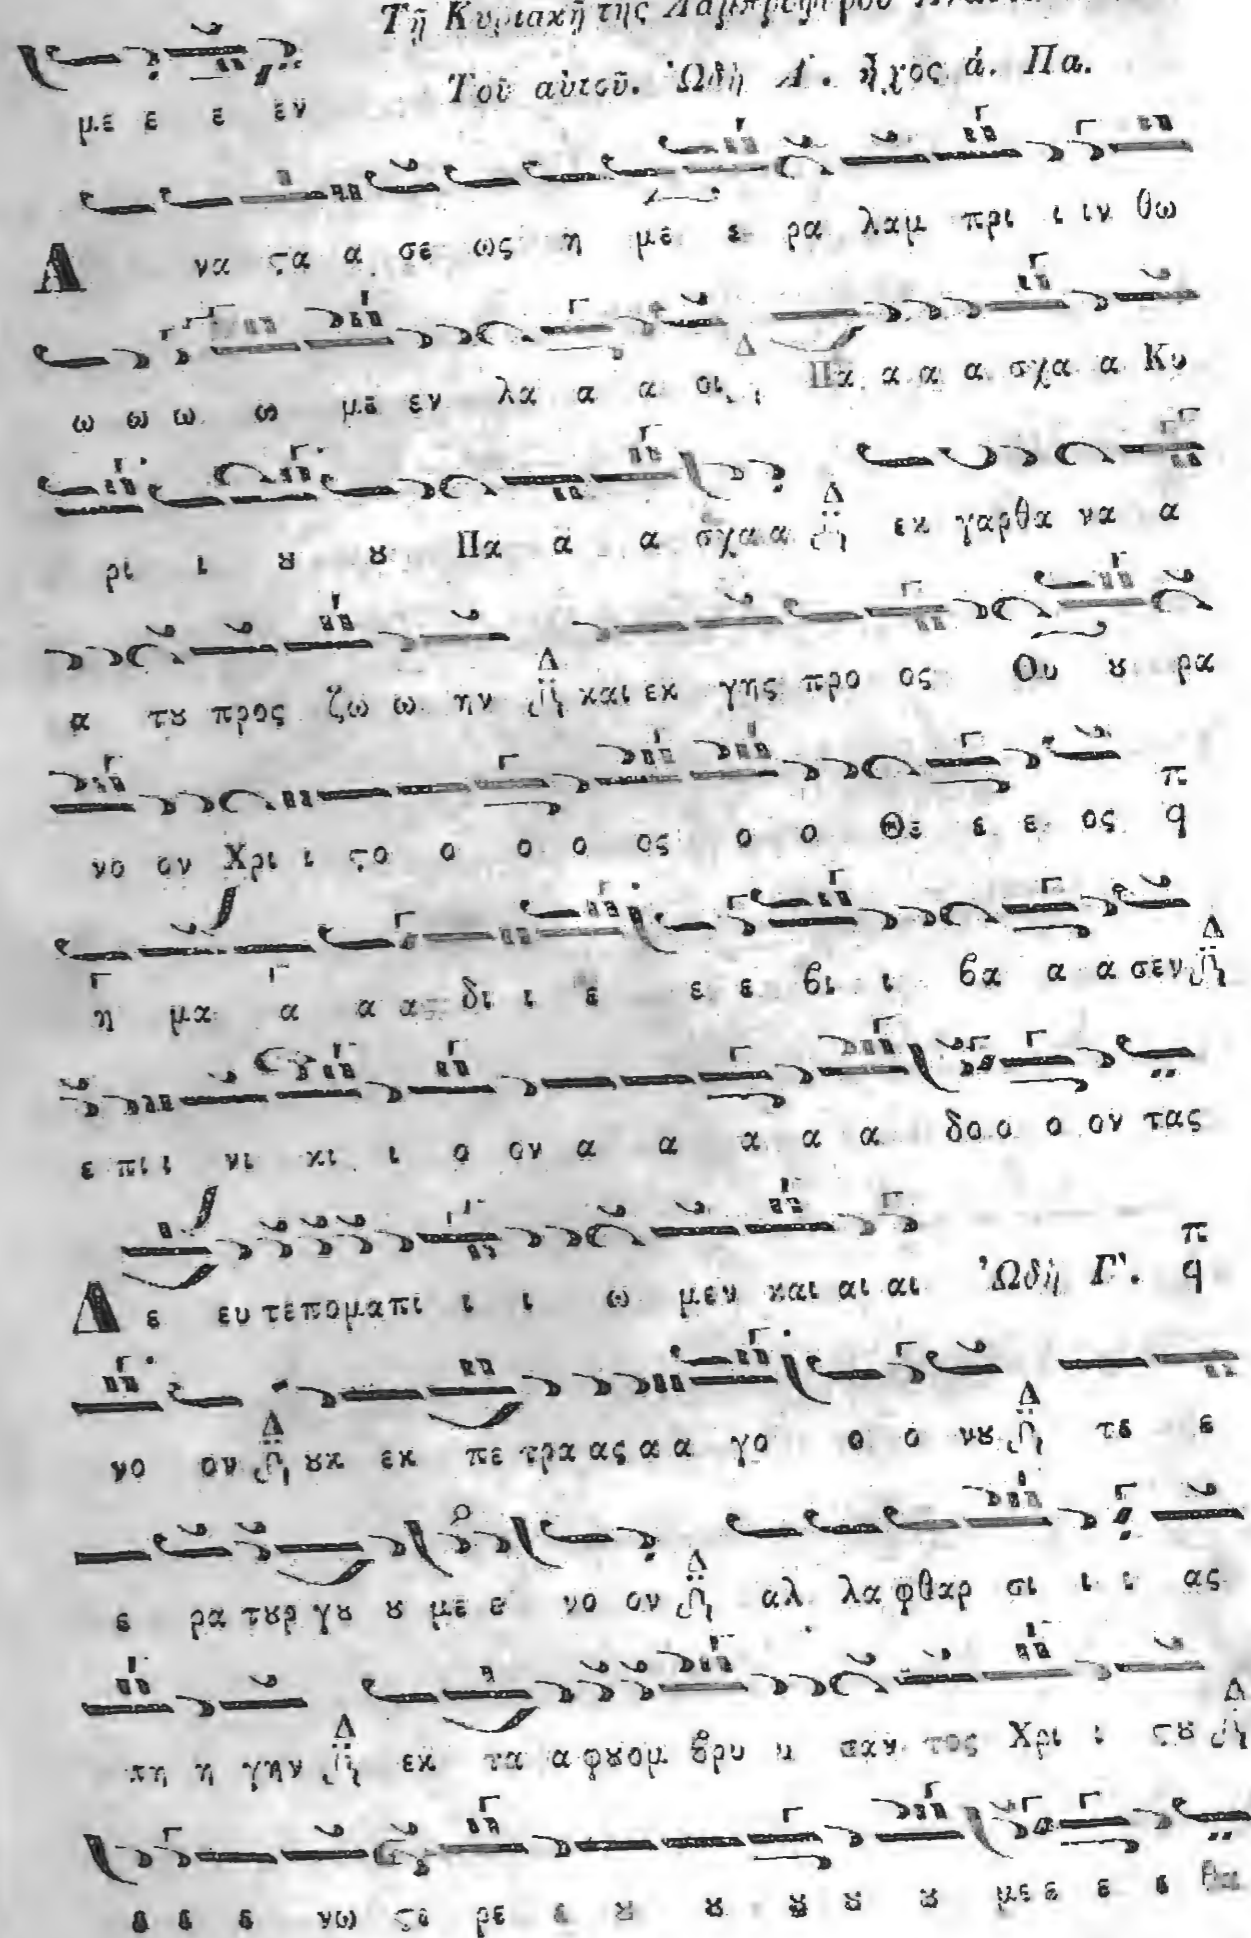 Τῇ Κυριακῇ της
με ε ε εν
Τοῦ αὐτοῦ. Ὠδὴ Α΄. ἦχος ά. Πα.
Α να ϛα α σε ως η με ε ρα λαμ πρι ι ιν θω
ω ω ω ω με εν λα α α οι Πα α α α σχα α Κυ
ρι ι ȣ ȣ Πα α α σχα α Δ εκ γαρ θα να α
α τȣ προς ζω ω ην Δ και εκ γης προ ος Ου ȣ ρα
νο ον Χρι ι ϛο ο ο ο ος ο ο Θε ε ε ος π q
η μα α α α δι ι ε ε ε βι ι βα α α σεν Δ
ε πι ι νι κι ι ο ον α α α α α δο ο ο ον τας
Δ ε ευ τε πο μα πι ι ι ω μεν και αι αι Ὠδὴ Γ΄. π q
νο ον Δ ȣκ εκ πε τρα ας α α γο ο ο νȣ Δ τε ε
ε ρα τȣρ γȣ ȣ με ε νο ον Δ αλ λα φθαρ σι ι ι ας
πη η γην Δ εκ τα α φȣ ομ βρυ υ σαν τος Χρι ι ϛȣ Δ
ε ε ε νω ϛε ρε ε ȣ ȣ ȣ ȣ ȣ με ε ε ε θα